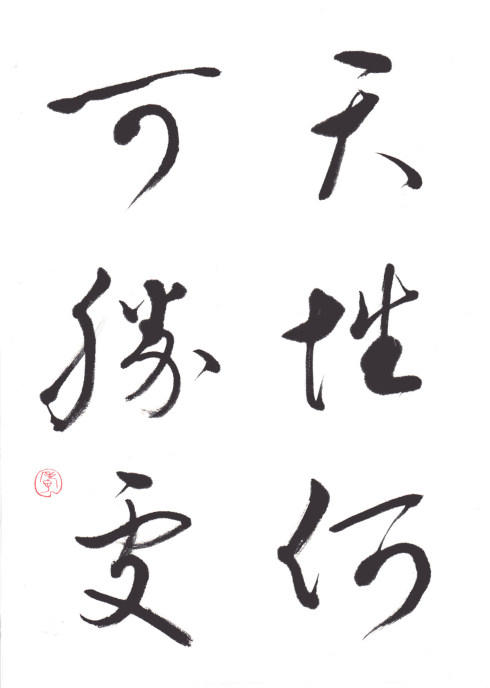 天性何
可勝處